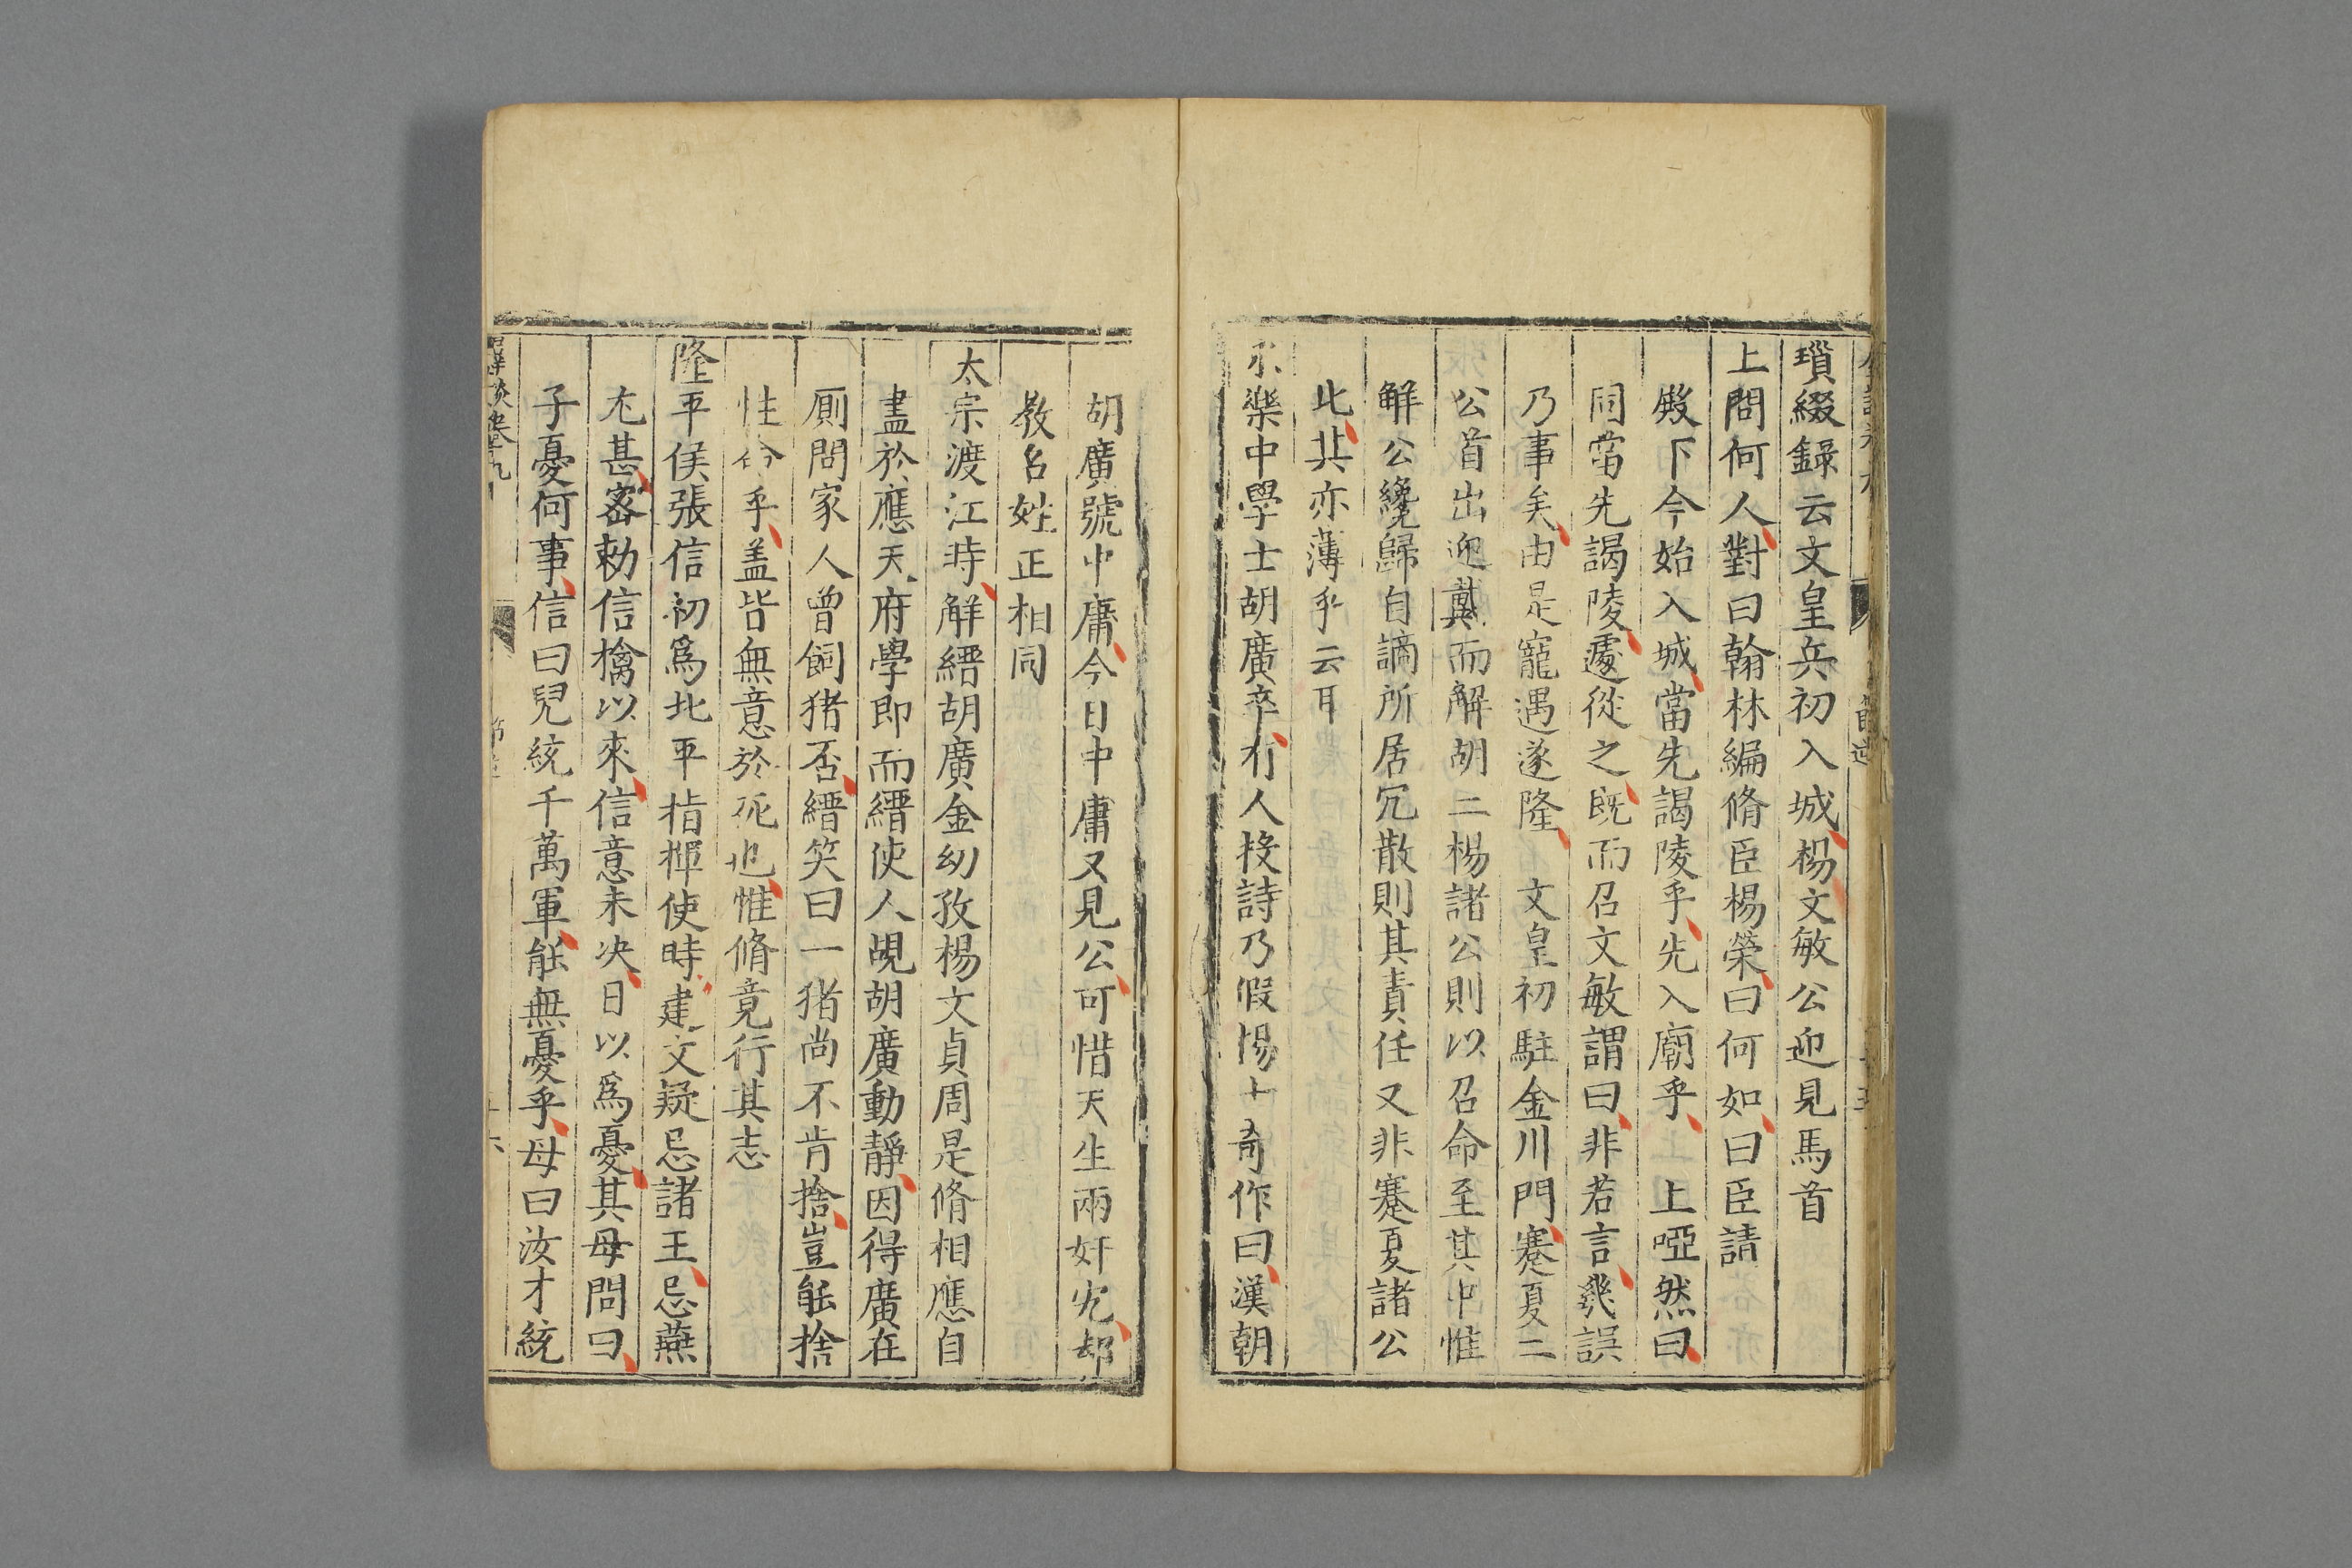 瑣綴錄云文皇兵初入城楊文敏公迎見馬首
上問何人對曰翰林編脩臣楊榮曰何如曰臣請
殿下今始入城當先謁陵乎先入廟乎上啞然曰
同當先謁陵遽從之旣而召文敏謂曰非若言幾誤
乃事矣由是寵遇遂隆文皇初駐金川門蹇夏二
公首出迎戴而解胡二楊諸公則以召命至其中惟
解公纔歸自謫所居冗散則其責任又非蹇夏諸公
比其亦薄乎云耳
永樂中學士胡廣卒有人投詩乃假楊士奇作曰漢朝
胡廣號中庸今日中庸又見公可惜天生兩奸宄却
教名姓正相同
太宗渡江時解縉胡廣金幼孜楊文貞周是脩相應自
盡於應天府學即而縉使人覘胡廣動靜因得廣在
厠問家人曾飼猪否縉笑曰一猪尚不肯捨豈能捨
性命乎盖皆無意於死也惟脩竟行其志
隆平侯張信初爲北平指揮使時建文疑忌諸王忌燕
尤甚密勑信擒以來信意未决日以爲憂其母問曰
子憂何事信曰兒統千萬軍能無憂乎母曰汝才統